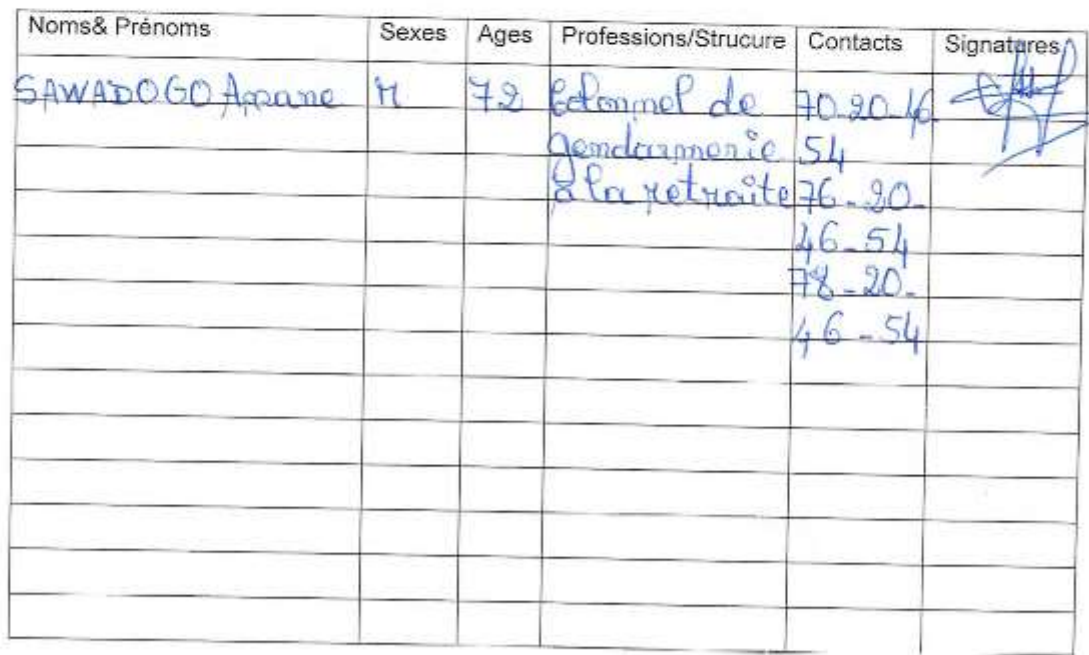 Noms& Prénoms Sexes Ages Professions/Strucure Contacts Signatures
SAWADOGO Assane M 72 Colonnel de 70-20-46
gendarmerie 54
à la retraite 76-20-
46-54
78-20-
46-54